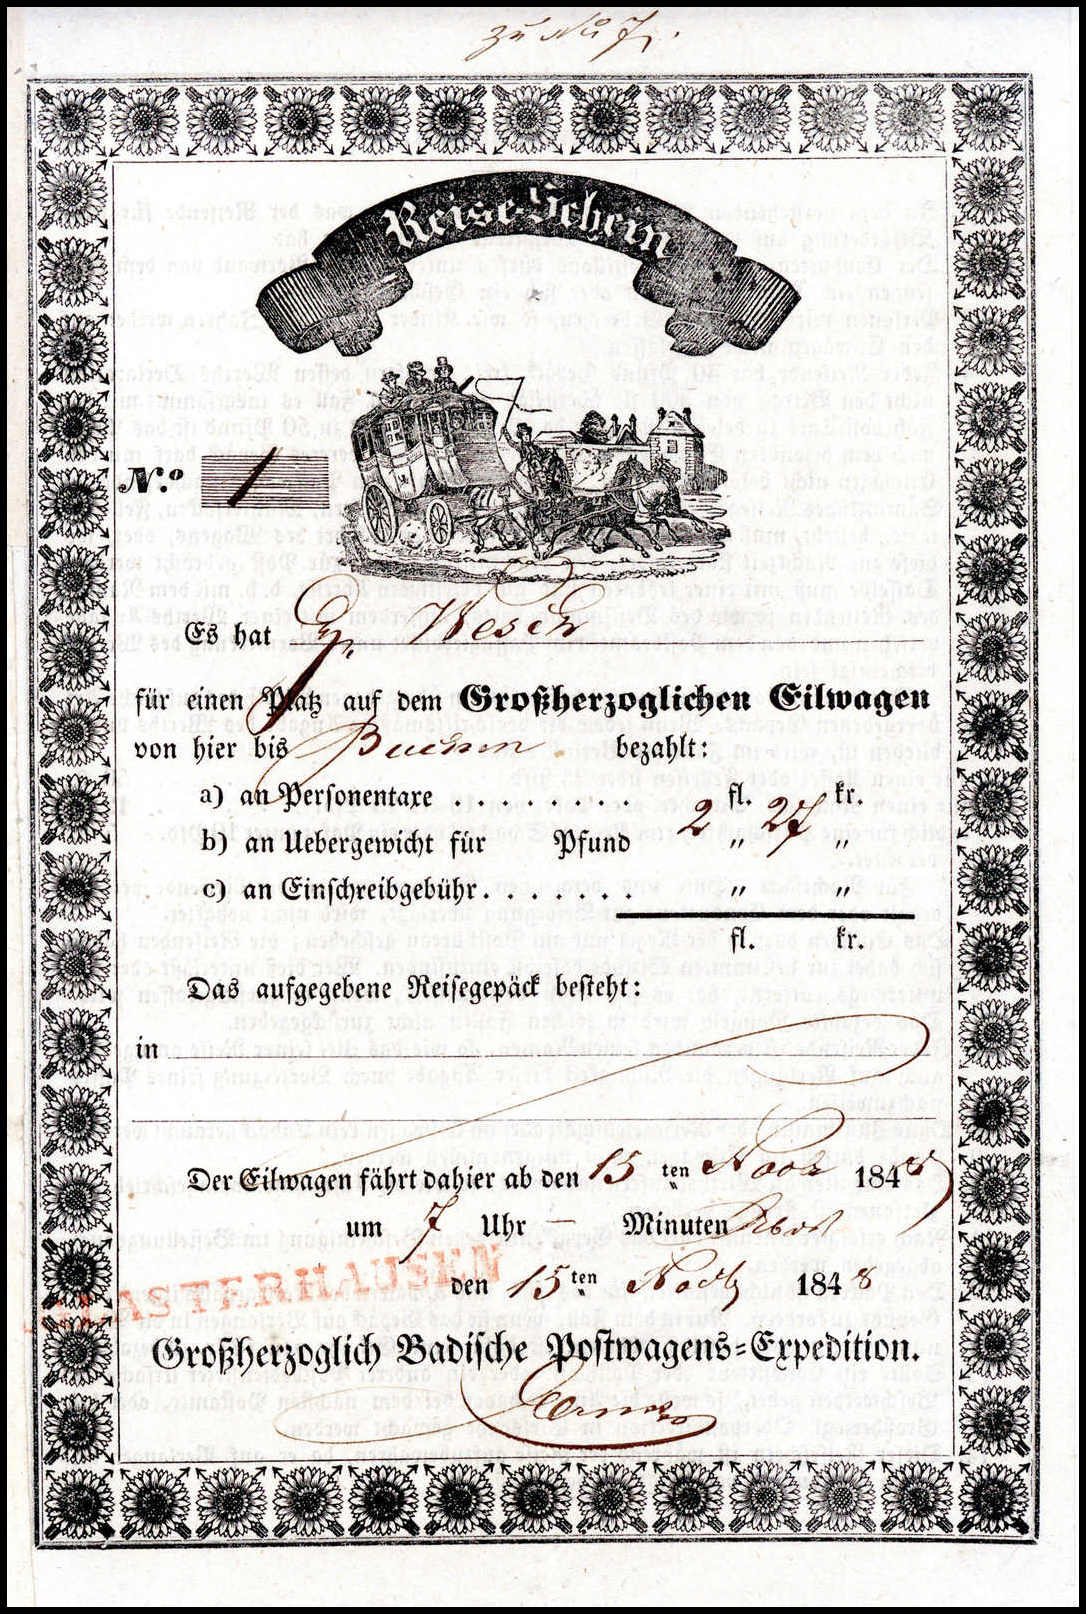 zu No 7.
Reise-Schein
N.º 1
Es hat Hr. Wesch
für einen Platz auf dem Großherzoglichen Eilwagen
von hier bis Buchen bezahlt:
a) an Personentaxe . . . . . . . fl. kr.
2 27
b) an Uebergewicht für Pfund „ „
c) an Einschreibgebühr . . . . . . . „ „
fl. kr.
Das aufgegebene Reisegepäck besteht:
in
Der Eilwagen fährt dahier ab den 15 ten 1848
um 7 Uhr — Minuten
ASTERHAUSEN
den 15 ten 1848
Großherzoglich Badische Postwagens=Expedition.